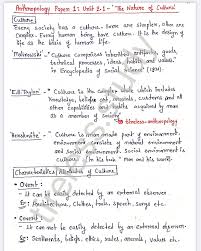 Anthropology Paper 1: Unit 2.1 - "The Nature of Culture"
Culture:
Every society has a culture. Some are simpler, often are
complex. Every human being have culture. It is the design
of life as the basis of human life.
"Malinowski" - Culture comprises inherited artifacts, goods,
technical processes, ideas, habits and values.
in Encyclopedia of Social Science (1931).
"E.B. Tylor" - Culture is the complex whole which includes
Knowledge, belief, art, morals, customs and all
other capabilities and habits acquired by man
as a member of society.
"Herskovits" - Culture is man made part of environment.
environment consists of natural environment
and social environment. Social environment is
Culture. In his book "Man and his world".
Characteristics/Attributes of Culture:
Overt:
It can be easily detected by an external observer
Ex: Architectures, clothes, tools, speech, songs etc.
Covert:
It can not be easily detected by an external observer.
Ex: Sentiments, beliefs, ethics, values, morals, etc.